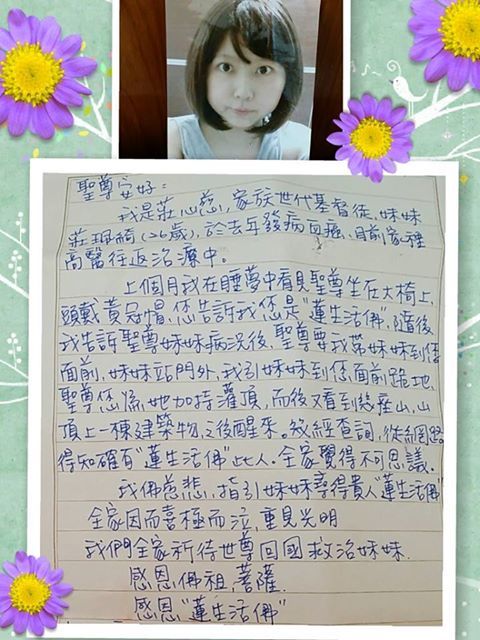 聖尊安好：
我是莊心慈，家族世代基督徒，妹妹
莊珮綺（26歲），於去年發病血癌，目前家裡
高醫往返治療中。
上個月我在睡夢中看見聖尊坐在大椅上，
頭戴黃冠帽，您告訴我您是“蓮生活佛”，隨後
我告訴聖尊妹妹病況後，聖尊要我帶妹妹到您
面前，妹妹站門外，我引妹妹到您面前跪地，
聖尊您為她加持灌頂，而後又看到幾座山，山
頂上一棟建築物，之後醒來。幾經查詢，從網路
得知確有“蓮生活佛”此人。全家覺得不可思議。
我佛慈悲，指引妹妹尋得貴人“蓮生活佛”
全家因而喜極而泣，重見光明
我們全家祈待世尊回國救治妹妹.
感恩佛祖，菩薩.
感恩“蓮生活佛”